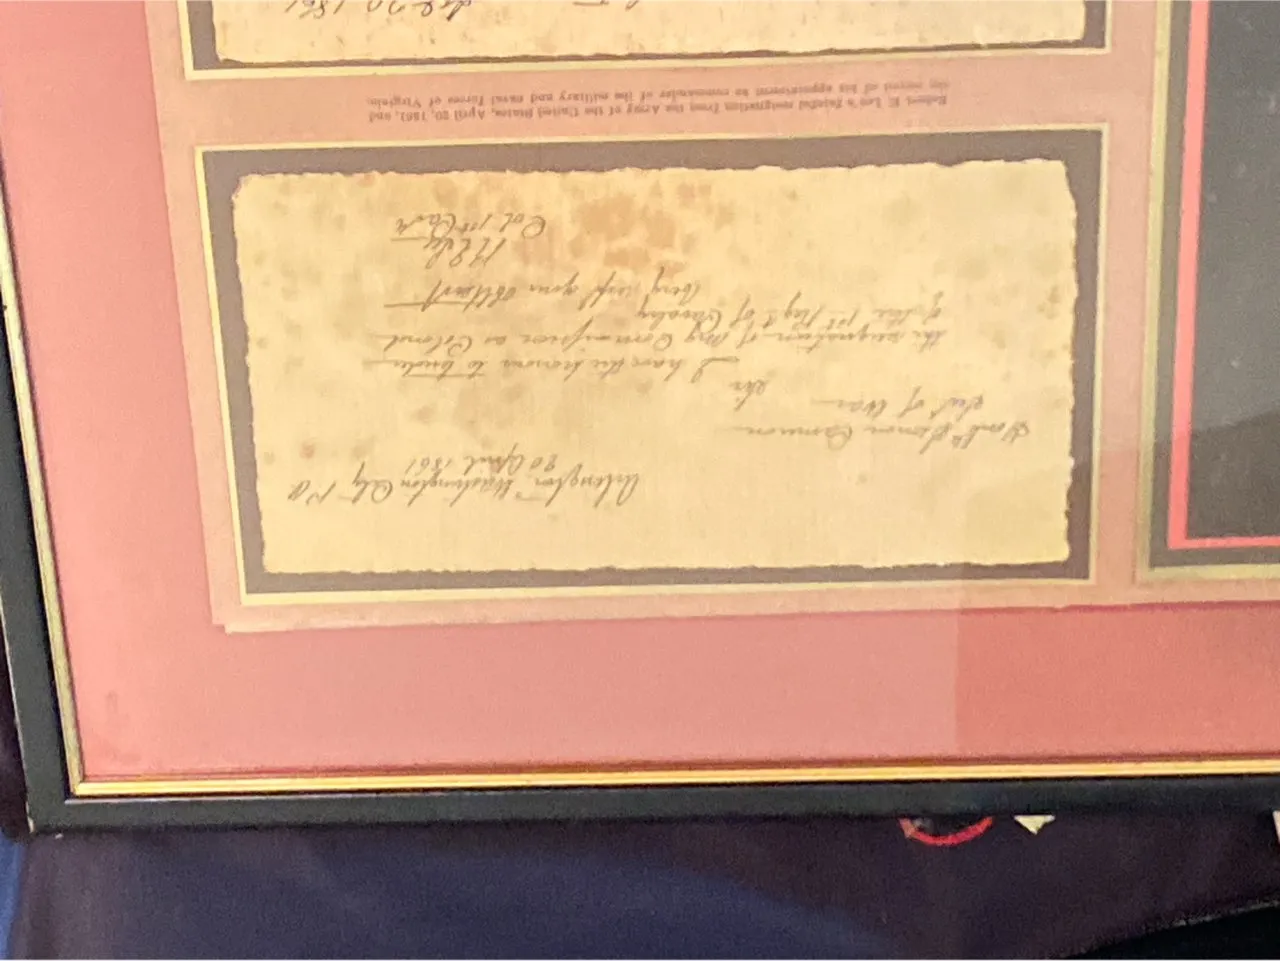 Arlington, Washington City P.O
20 April 1861
Honble Simon Cameron
Sect of War
Sir
I have the honour to tender
the resignation of my Commission as Colonel
of the 1st Regt of Cavalry
Very resp your Obt Servt
R E Lee
Col 1st Cavly
Robert E. Lee's fateful resignation from the Army of the United States, April 20, 1861, and
the record of his appointment as commander of the military and naval forces of Virginia.
20 1861